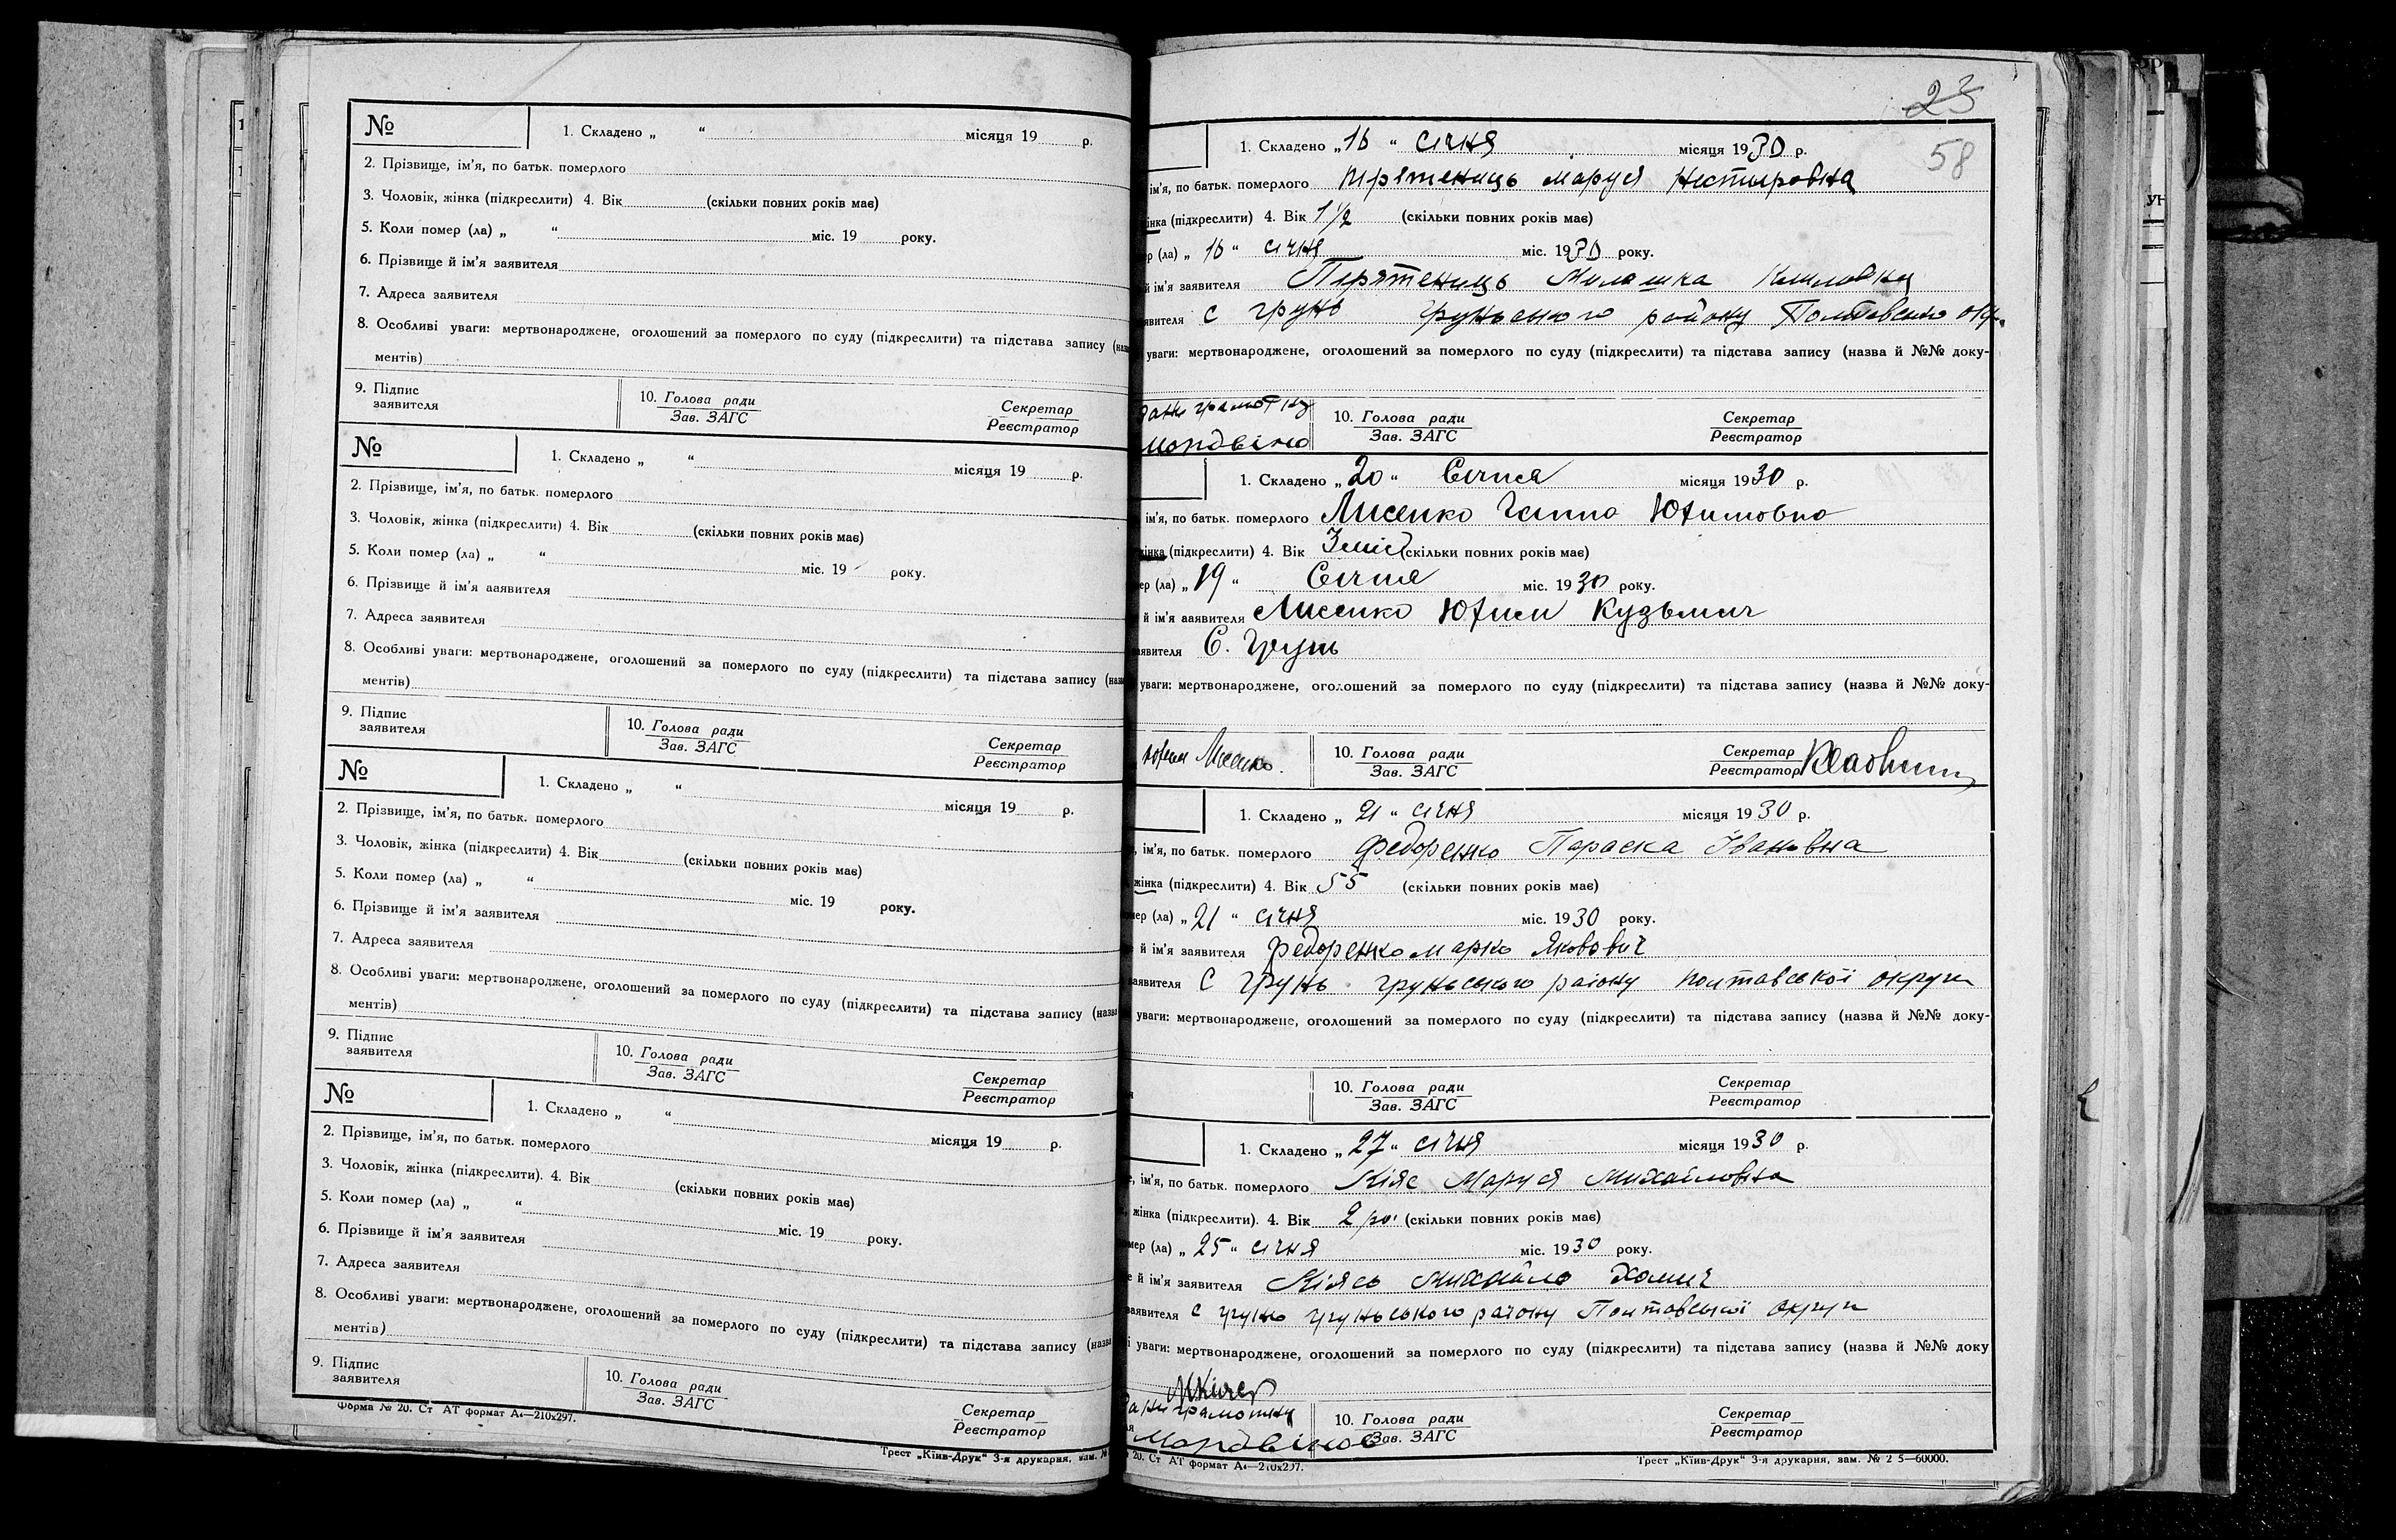 №
1. Складено „ “ місяця 19 р.
2. Прізвище, ім'я, по батьк. померлого
3. Чоловік, жінка (підкреслити) 4. Вік (скільки повних років має)
5. Коли помер (ла) „ “ міс. 19 року.
6. Прізвище й ім'я заявителя
7. Адреса заявителя
8. Особливі уваги: мертвонароджене, оголошений за померлого по суду (підкреслити) та підстава запису (наз
ментів)
9. Підпис заявителя
10. Голова ради Зав. ЗАГС
Секретар Реєстратор
№
1. Складено „ “ місяця 19 р.
2. Прізвище, ім'я, по батьк. померлого
3. Чоловік, жінка (підкреслити) 4. Вік (скільки повних років має)
5. Коли помер (ла) „ “ міс. 19 року.
6. Прізвище й ім'я аявителя
7. Адреса заявителя
8. Особливі уваги: мертвонароджене, оголошений за померлого по суду (підкреслити) та підстава запису (наз
ментів)
9. Підпис заявителя
10. Голова ради Зав. ЗАГС
Секретар Реєстратор
№
1. Складено „ “ місяця 19 р.
2. Прізвище, ім'я, по батьк. померлого
3. Чоловік, жінка (підкреслити) 4. Вік (скільки повних років має)
5. Коли помер (ла) „ “ міс. 19 року.
6. Прізвище й ім'я заявителя
7. Адреса заявителя
8. Особливі уваги: мертвонароджене, оголошений за померлого по суду (підкреслити) та підстава запису (назва
ментів)
9. Підпис заявителя
10. Голова ради Зав. ЗАГС
Секретар Реєстратор
№
1. Складено „ “ місяця 19 р.
2. Прізвище, ім'я, по батьк. померлого
3. Чоловік, жінка (підкреслити). 4. Вік (скільки повних років має)
5. Коли помер (ла) „ “ міс. 19 року.
6. Прізвище й ім'я заявителя
7. Адреса заявителя
8. Особливі уваги: мертвонароджене, оголошений за померлого по суду (підкреслити) та підстава запису (назва
ментів)
9. Підпис заявителя
10. Голова ради Зав. ЗАГС
Секретар Реєстратор
Форма № 20. Ст АТ формат А4—210х297.
Трест „Київ-Друк“ 3-я друкарня, зам. №
23
58
1. Складено „16“ січня місяця 1930 р.
ім'я, по батьк. померлого Маруся Нестировна
інка (підкреслити) 4. Вік 1 1/2 (скільки повних років має)
ер (ла) „16“ січня міс. 1930 року.
й ім'я заявителя Пирятенець Милашка
явителя с Грунь Груньского району Полтавської окр.
уваги: мертвонароджене, оголошений за померлого по суду (підкреслити) та підстава запису (назва й №№ доку-
за неграмотну
Мордвінов
10. Голова ради Зав. ЗАГС
Секретар Реєстратор
1. Складено „20“ Січня місяця 1930 р.
ім'я, по батьк. померлого Лисенко Ганна Юхимовна
жінка (підкреслити) 4. Вік 3 міс (скільки повних років має)
ер (ла) „19“ Січня міс. 1930 року.
й ім'я аявителя Лисенко Юхим Кузьмич
аявителя С. Грунь
уваги: мертвонароджене, оголошений за померлого по суду (підкреслити) та підстава запису (назва й №№ доку-
Юхим Лисенко.
10. Голова ради Зав. ЗАГС
Секретар Реєстратор
1. Складено „21“ січня місяця 1930 р.
ім'я, по батьк. померлого Федоренко Параска Івановна
жінка (підкреслити) 4. Вік 55 (скільки повних років має)
мер (ла) „21“ січня міс. 1930 року.
й ім'я заявителя Федоренко Марко Якович
заявителя С Грунь Груньського району Полтавської округи
уваги: мертвонароджене, оголошений за померлого по суду (підкреслити) та підстава запису (назва й №№ доку-
10. Голова ради Зав. ЗАГС
Секретар Реєстратор
1. Складено „27“ січня місяця 1930 р.
ім'я, по батьк. померлого Кіяс Маруся Михайловна
жінка (підкреслити). 4. Вік 2 ро. (скільки повних років має)
мер (ла) „25“ січня міс. 1930 року.
е й ім'я заявителя Кіясь Михайло Хомич
заявителя с Грунь Груньського району Полтавської округи
і уваги: мертвонароджене, оголошений за померлого по суду (підкреслити) та підстава запису (назва й №№ доку
за неграмотну
Мордвінов
10. Голова ради Зав. ЗАГС
Секретар Реєстратор
20. Ст АТ формат А4—210х297.
Трест „Київ-Друк“ 3-я друкарня, зам. № 2 5—60000.